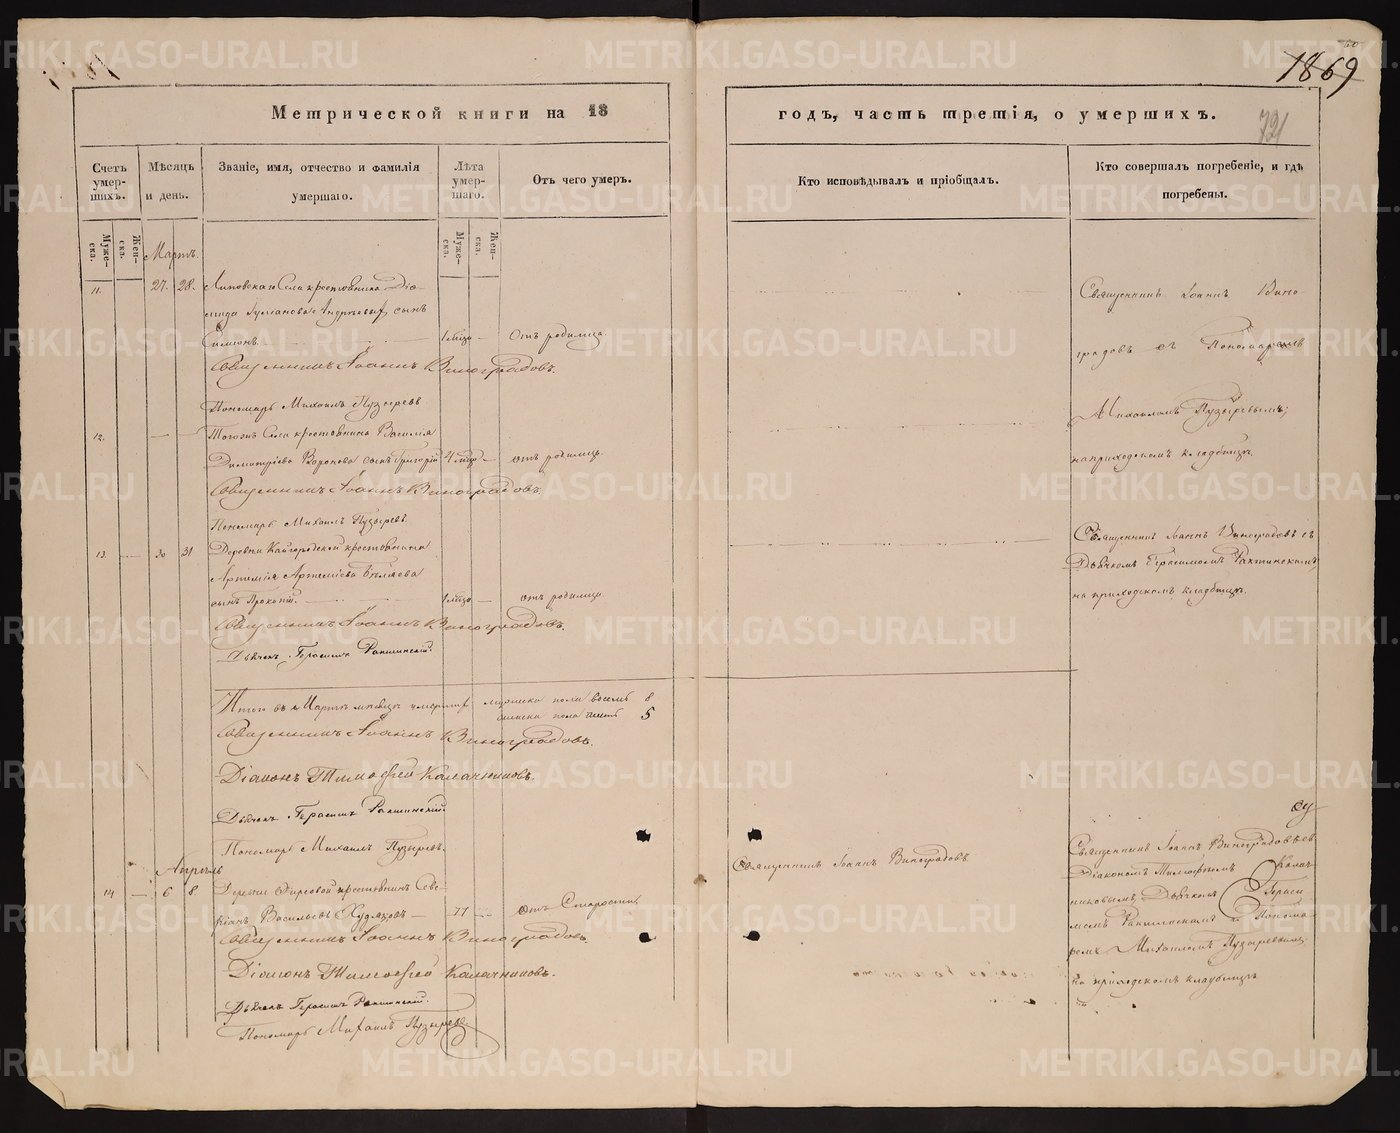 1869
Метрической книги на 18
годъ, часть третія, о умершихъ.
721
Счетъ умер-шихъ.
Мѣсяцъ и день.
Званіе, имя, отчество и фамилія умершаго.
Лѣта умер-шаго.
Отъ чего умеръ.
Кто исповѣдывалъ и пріобщалъ.
Кто совершалъ погребеніе, и гдѣ погребены.
Муже-ска.
Жен-ска.
Муже-ска.
Жен-ска.
Мартъ.
11.
27.
28.
Липовскаго Села крестьянина Діо-
мида Андреева сынъ
Симеонъ.
1 мѣсяц
Отъ родимца.
Священникъ Іоаннъ Виноградовъ.
Пономарь Михаилъ Пузыревъ
Священникъ Іоаннъ Вино-
градовъ съ Пономаремъ
Михаиломъ Пузыревымъ;
на приходскомъ кладбищѣ.
12.
Тогожъ Села крестьянина Василія
Димитріева Воронова сынъ Григорій
4 мѣсяц
отъ родимца.
Священникъ Іоаннъ Виноградовъ.
Пономарь Михаилъ Пузыревъ.
13.
30
31
Деревни Кайгородской крестьянина
Артемія Артеміева Бѣляева
сынъ Прокопій.
1 мѣсяц
отъ родимца.
Священникъ Іоаннъ Виноградовъ.
Дьячекъ Герасимъ Ракшинскій.
Священникъ Іоаннъ Виноградовъ съ
Дьячкомъ Герасимомъ Ракшинскимъ,
на приходскомъ кладбищѣ.
Итого въ Мартѣ мѣсяцѣ умершихъ мужеска пола восемь 8
женска пола пять 5
Священникъ Іоаннъ Виноградовъ.
Діаконъ Тимофей Калачниковъ.
Дьячекъ Герасимъ Ракшинскій.
Пономарь Михаилъ Пузыревъ.
Апрѣль
14
6
8
Деревни Фирсовой крестьянинъ Севе-
ріанъ Васильевъ Худяковъ
77
отъ Старости.
Священникъ Іоаннъ Виноградовъ
Священникъ Іоаннъ Виноградовъ съ
Діакономъ Тимофеемъ Калач-
никовымъ, Дьячкомъ Гераси-
момъ Ракшинскимъ и Понома-
ремъ Михаиломъ Пузыревымъ,
на приходскомъ кладбищѣ
Священникъ Іоаннъ Виноградовъ.
Діаконъ Тимофей Калачниковъ.
Дьячекъ Герасимъ Ракшинскій.
Пономарь Михаилъ Пузыревъ.
METRIKI.GASO-URAL.RU